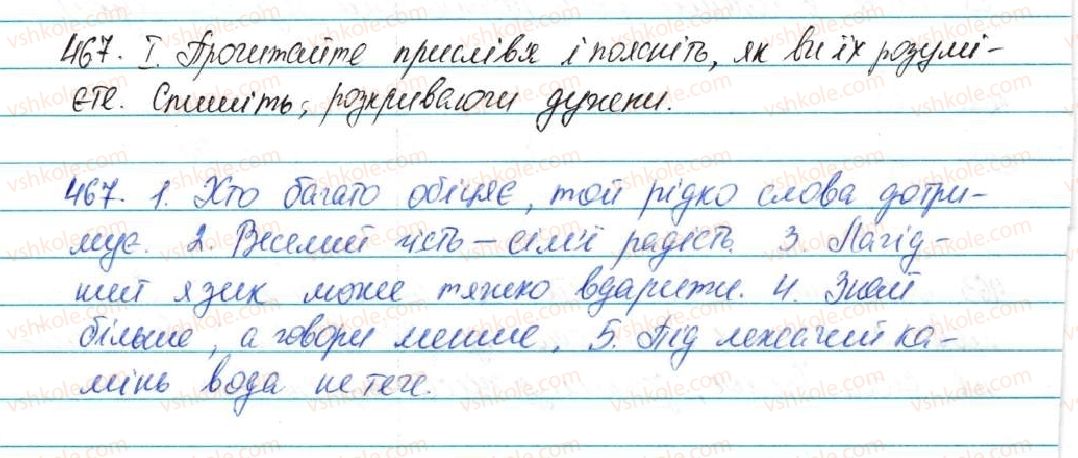 467. І. Прочитайте прислів'я і поясніть, як ви їх розумі-
єте. Спишіть, розкриваючи дужки.
467. 1. Хто багато обіцяє, той рідко слова дотри-
мує. 2. Веселий гість – сім'ї радість. 3. Лагід-
ний язик може тяжко вдарити. 4. Знай
більше, а говори менше. 5. Під лежачий ка-
мінь вода не тече.